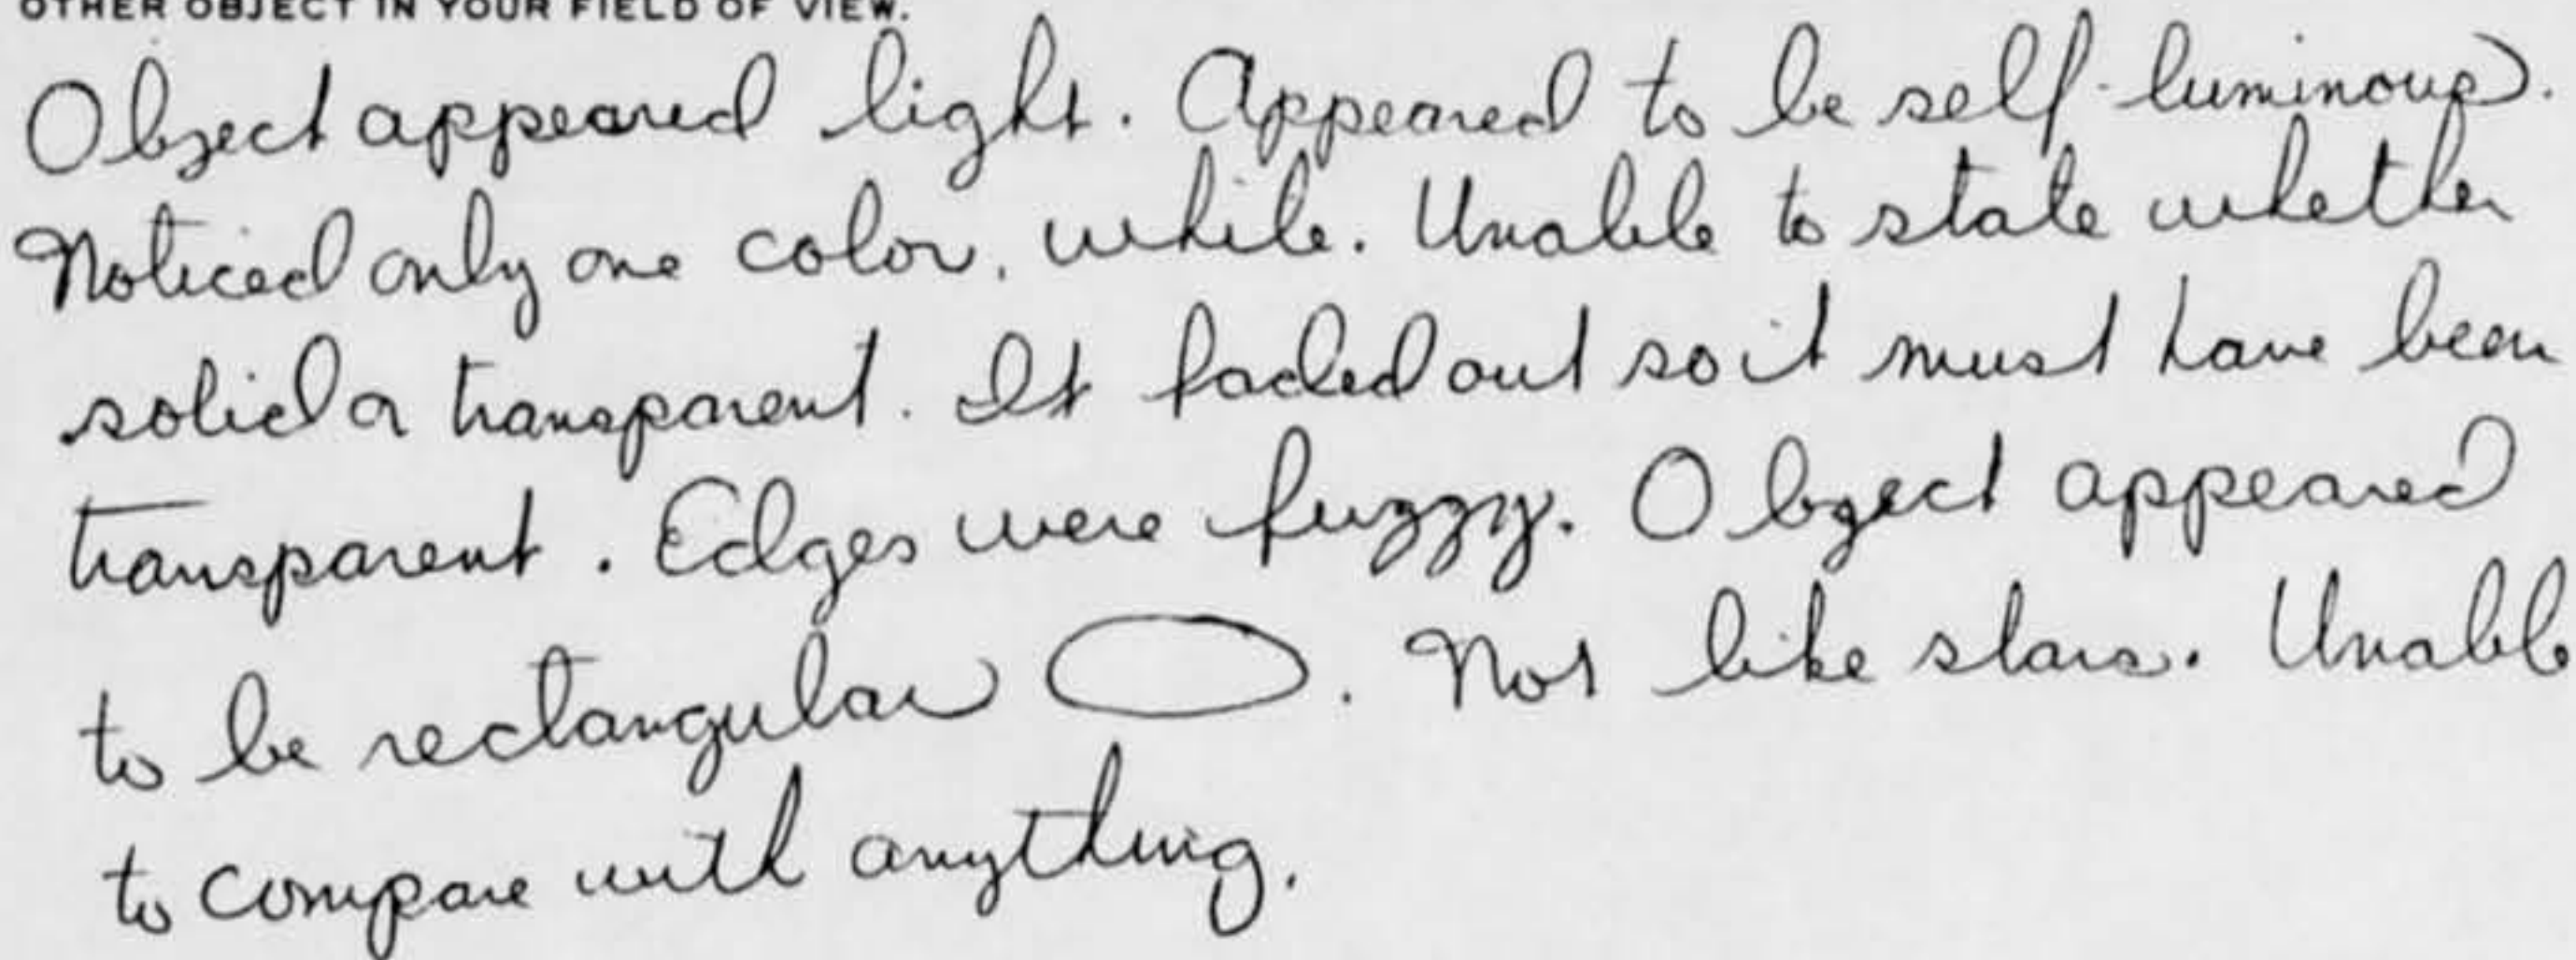 OTHER OBJECT IN YOUR FIELD OF VIEW.
Object appeared light. Appeared to be self-luminous.
Noticed only one color, white. Unable to state whether
solid or transparent. It faded out so it must have been
transparent. Edges were fuzzy. Object appeared
to be rectangular. Not like stars. Unable
to compare with anything.